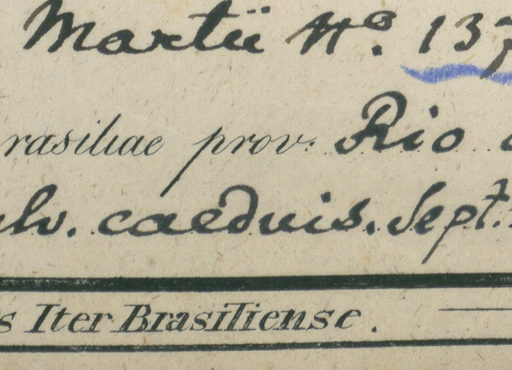 Martii No. 137
rasiliae prov. Rio
lv. caeduis. Sept.
s Iter Brasiliense.